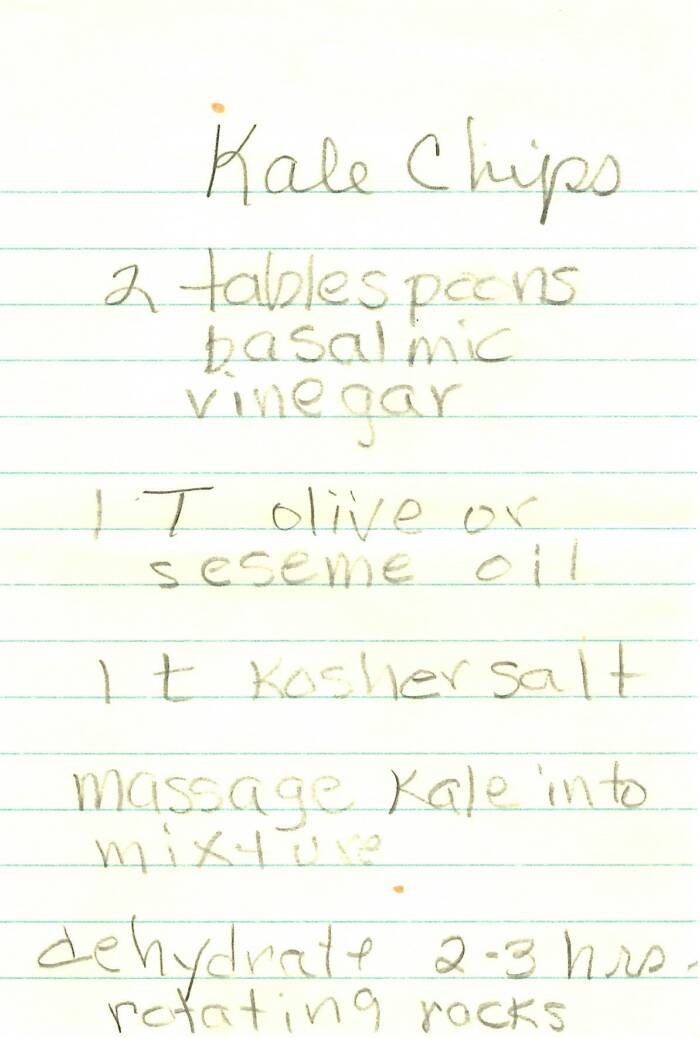 Kale Chips
2 tablespoons
basalmic
vinegar
1 T olive or
seseme oil
1 t kosher salt
massage kale into
mixture
dehydrate 2-3 hrs.
rotating rocks